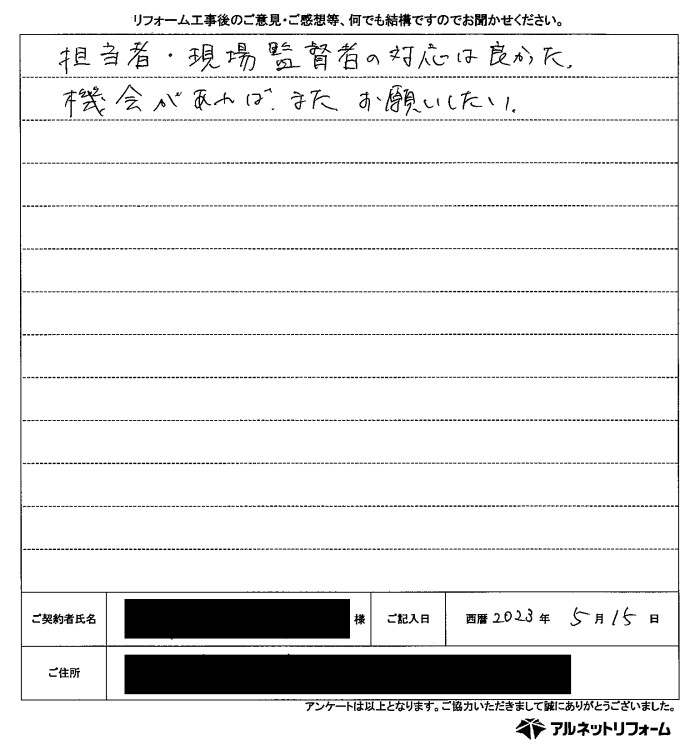 リフォーム工事後のご意見・ご感想等、何でも結構ですのでお聞かせください。
担当者・現場監督者の対応は良かった。
機会があれば、また お願いしたい。
ご契約者氏名 様 ご記入日 西暦 2023 年 5 月 15 日
ご住所
アンケートは以上となります。ご協力いただきまして誠にありがとうございました。
アルネットリフォーム